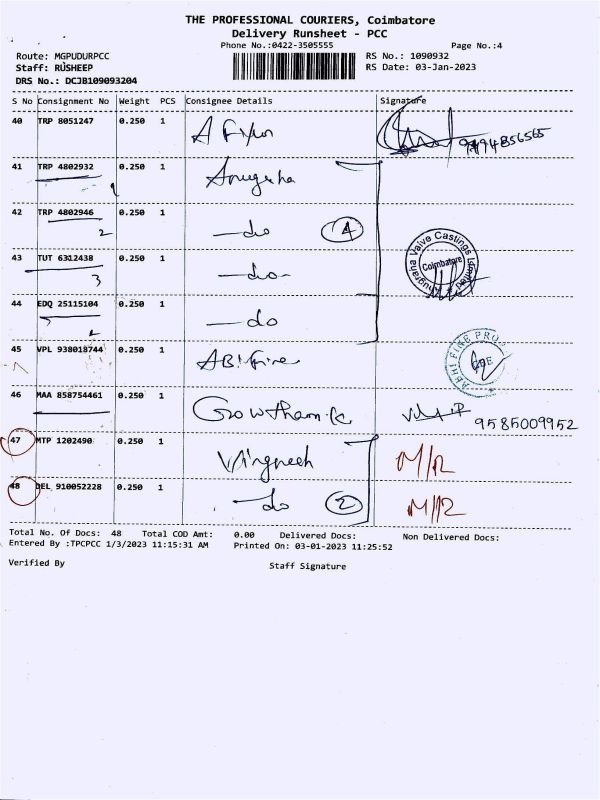 THE PROFESSIONAL COURIERS, Coimbatore
Delivery Runsheet - PCC
Phone No.:0422-3505555 Page No.:4
Route: MGPUDURPCC RS No.: 1090932
Staff: RUSHEEP RS Date: 03-Jan-2023
DRS No.: DCJB109093204
S No Consignment No Weight PCS Consignee Details Signature
40 TRP 8051247 0.250 1
41 TRP 4802932 0.250 1 Anugraha
1
42 TRP 4802946 0.250 1 —do 4
2
43 TUT 6312438 0.250 1 —do-
3
Anugraha Valve Castings Limited Coimbatore
44 EDQ 25115104 0.250 1 —do
45 VPL 938018744 0.250 1 ABI Fine
ABHI FINE
46 MAA 858754461 0.250 1 Gowtham.k
9585009952
47 MTP 1202490 0.250 1 Virgneesh M/R
48 DEL 910052228 0.250 1 —do 2 M/R
Total No. Of Docs: 48 Total COD Amt: 0.00 Delivered Docs: Non Delivered Docs:
Entered By :TPCPCC 1/3/2023 11:15:31 AM Printed On: 03-01-2023 11:25:52
Verified By Staff Signature